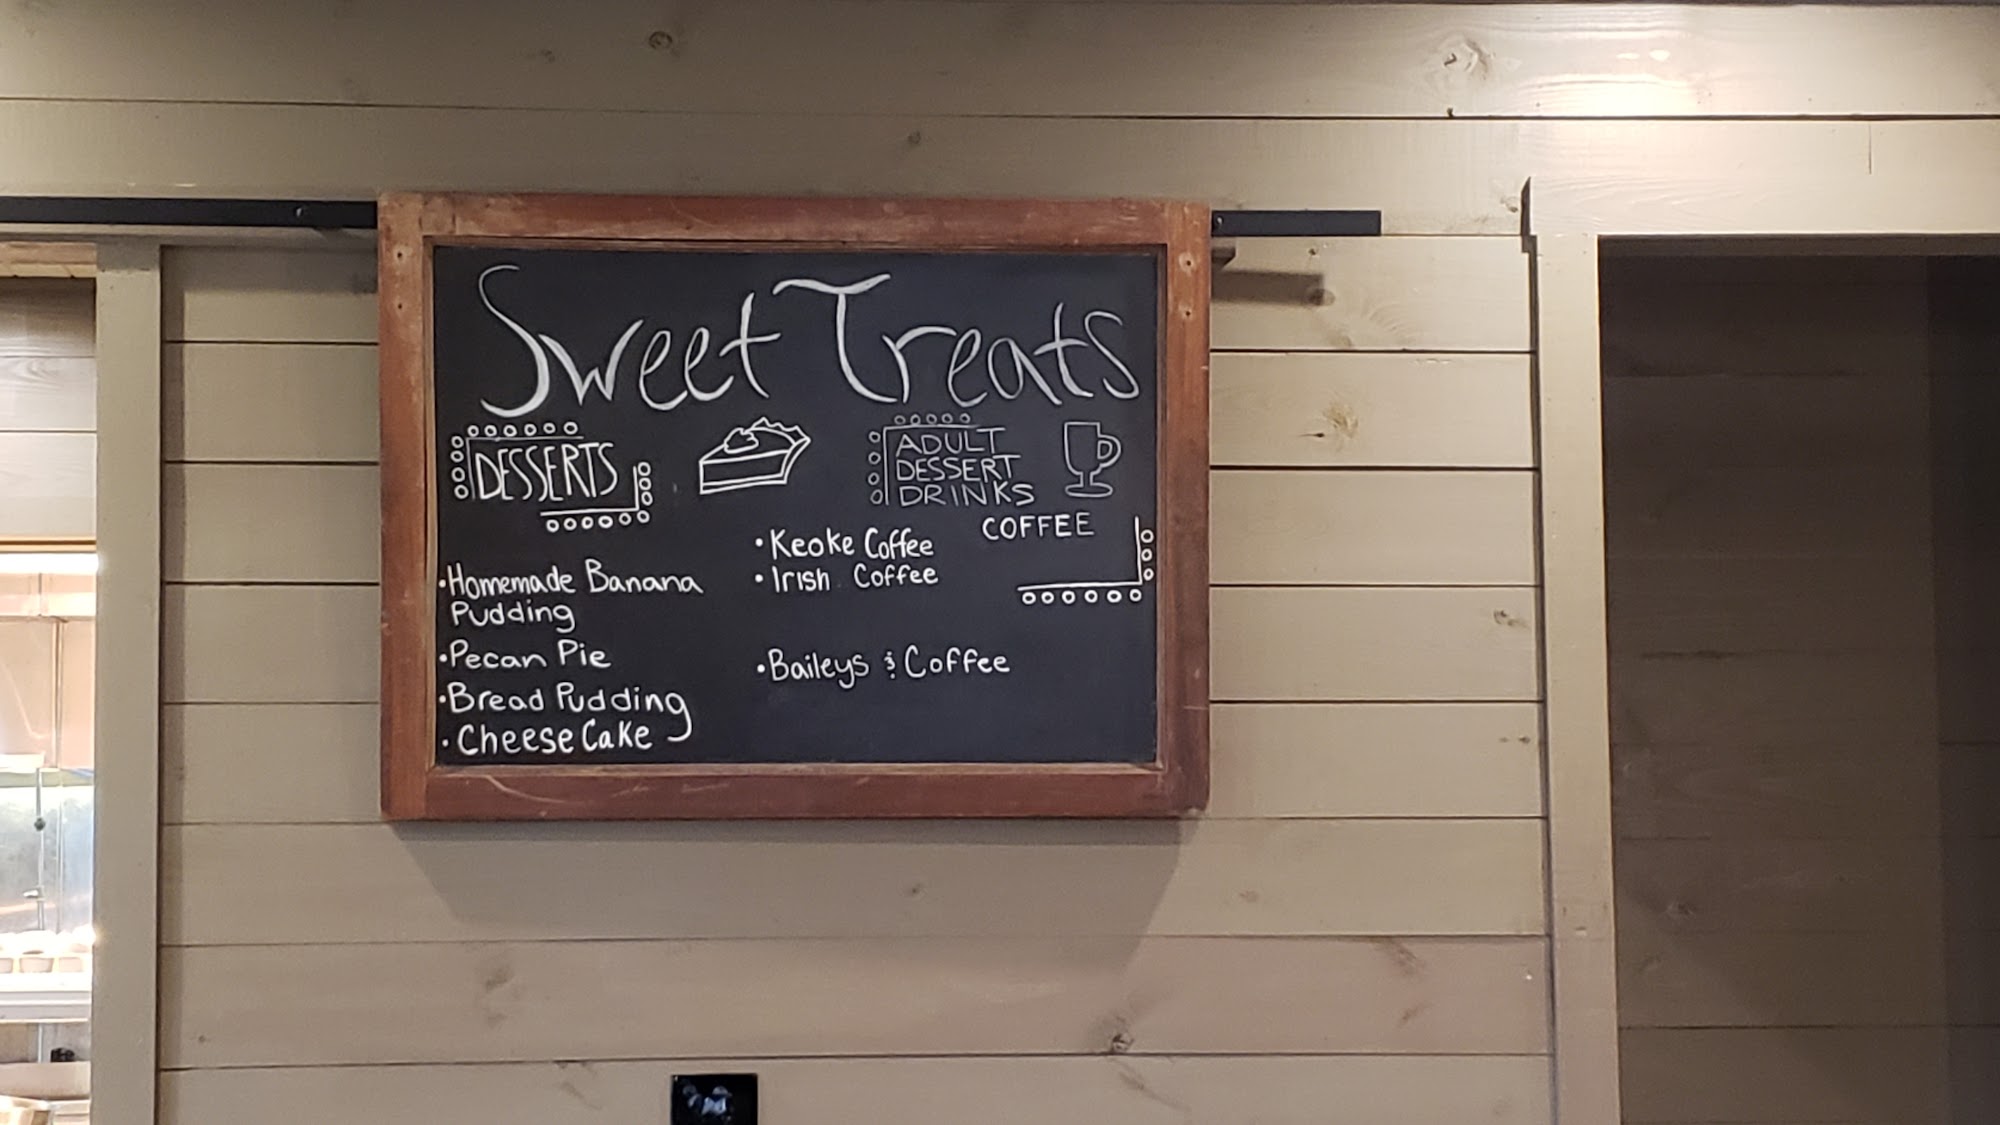 Sweet Treats
DESSERTS
•Homemade Banana
Pudding
•Pecan Pie
•Bread Pudding
•CheeseCake
ADULT
DESSERT
DRINKS
COFFEE
•Keoke Coffee
•Irish Coffee
•Baileys & Coffee